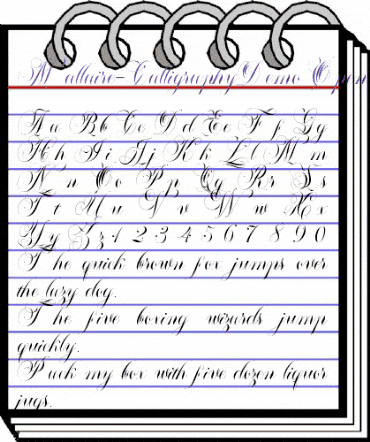 Mallaire-CalligraphyDemo Open
Aa Bb Cc Dd Ee Ff Gg
Hh Ii Jj Kk Ll Mm
Nn Oo Pp Qq Rr Ss
Tt Uu Vv Ww Xx
Yy Zz 1 2 3 4 5 6 7 8 9 0
The quick brown fox jumps over
the lazy dog.
The five boxing wizards jump
quickly.
Pack my box with five dozen liquor
jugs.